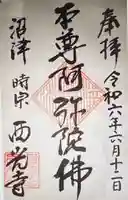 奉拝
令和六年六月十二日
本尊阿弥陀佛
沼津 時宗 西光寺